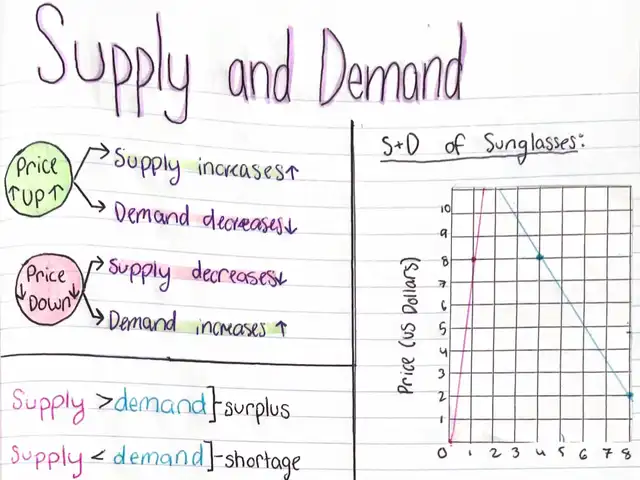 Supply and Demand
Price
↑UP↑
Supply increases↑
Demand decreases↓
Price
↓Down↓
Supply decreases↓
Demand increases ↑
Supply > demand]-surplus
Supply < demand]-shortage
S+D of Sunglasses:
Price (US Dollars)
10
9
8
7
6
5
4
3
2
1
0 1 2 3 4 5 6 7 8